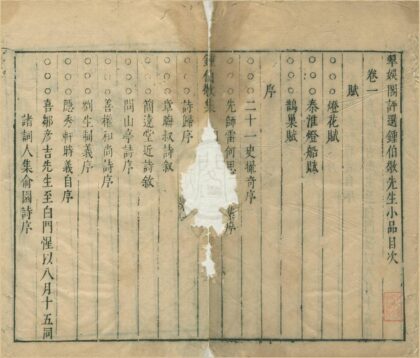 翠娛閣評選鍾伯敬先生小品目次
卷一
賦
○○○燈花賦
○○○秦淮燈船賦
○○○鵲巢賦
序
○○○二十一史撮奇序
○○○先師雷何思 集序
鍾伯敬集
○○○詩歸序
○○○章聯叔詩敘
○○○簡遠堂近詩敘
○○○問山亭詩序
○○○善權和尚詩序
○○○劉生制義序
○○○隱秀軒時義自序
○○○喜鄒彦吉先生至白門惺以八月十五同
諸詞人集俞園詩序